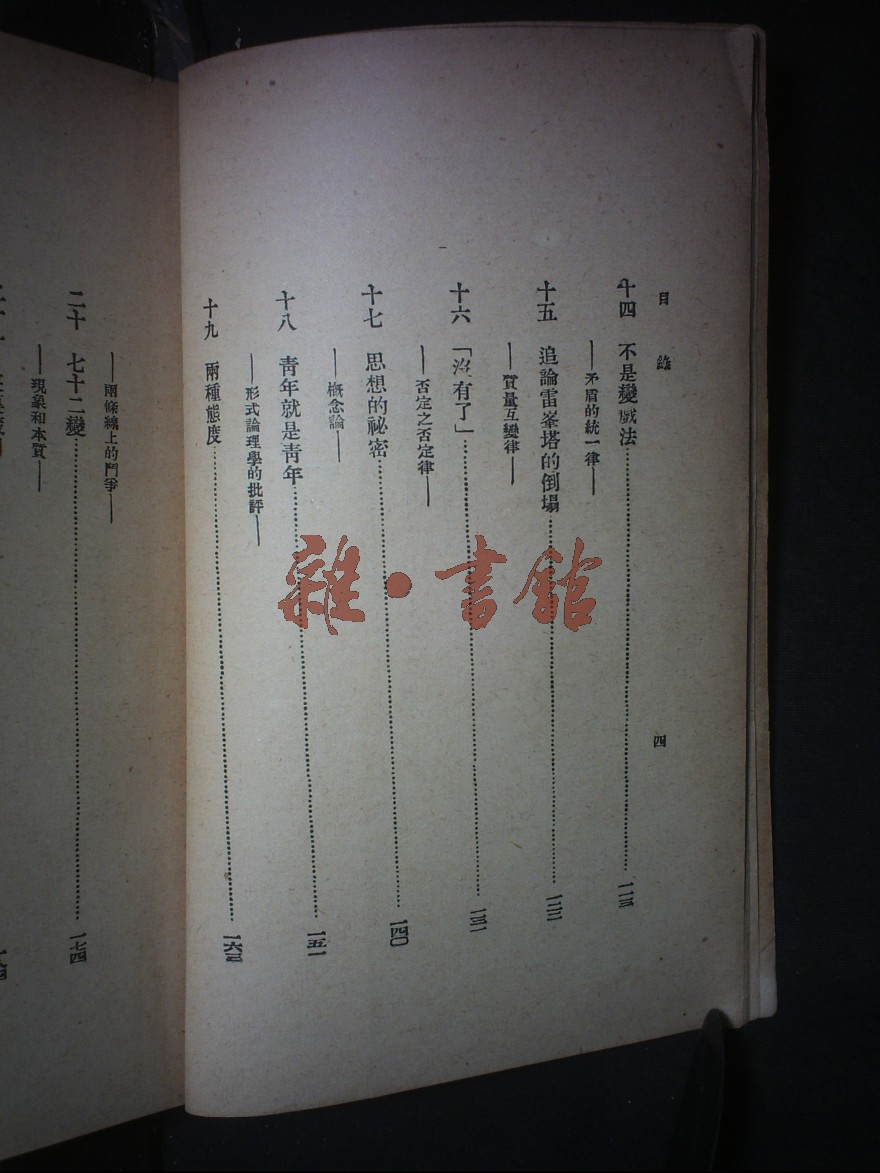 目錄
四
十四 不是變戲法 一一三
——矛盾的統一律——
十五 追論雷峯塔的倒塌 一二二
——質量互變律——
十六 「沒有了」 一三一
——否定之否定律——
十七 思想的祕密 一四〇
——概念論——
十八 青年就是青年 一五一
——形式論理學的批評——
十九 兩種態度 一六三
——兩條線上的鬥爭——
二十 七十二變 一七四
——現象和本質——
雜·書館